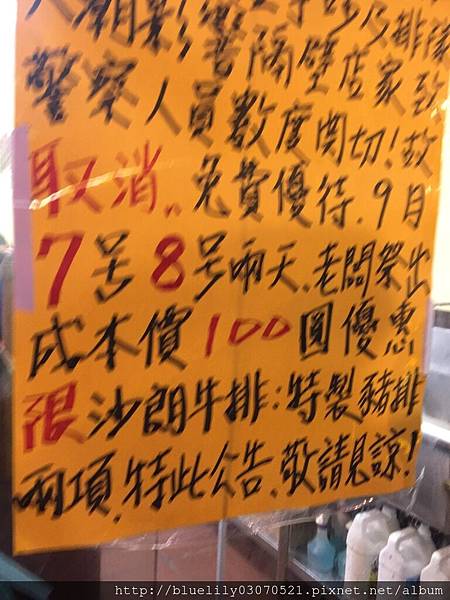 人潮影響
排隊
警察人員數度関切!故
隔壁店家致
取消、免費優待、9月
7号8号兩天、老闆祭出
成本價100圓優惠
限沙朗牛排:特製豬排
兩項、特此公告、敬請見諒!
http://bluelily03070521.pixnet.net/album